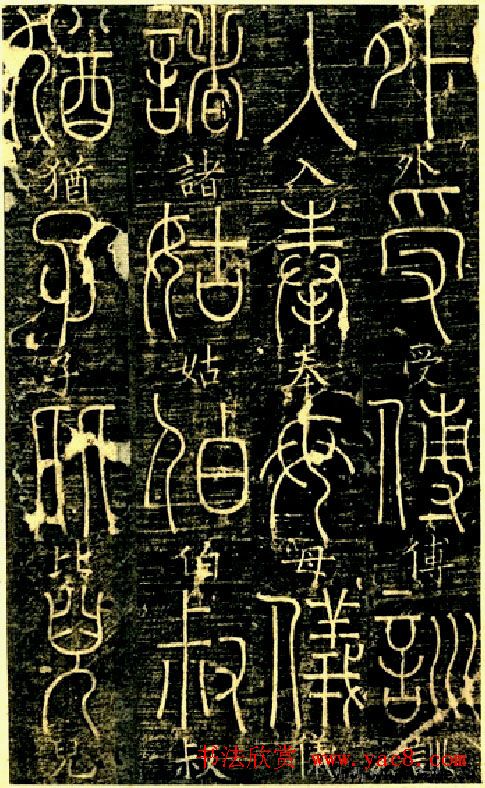 外外受受傅傅訓
入入奉奉母母儀
諸諸姑姑伯伯叔叔
猶猶子子比比兒兒
书法欣赏 www.yac8.com